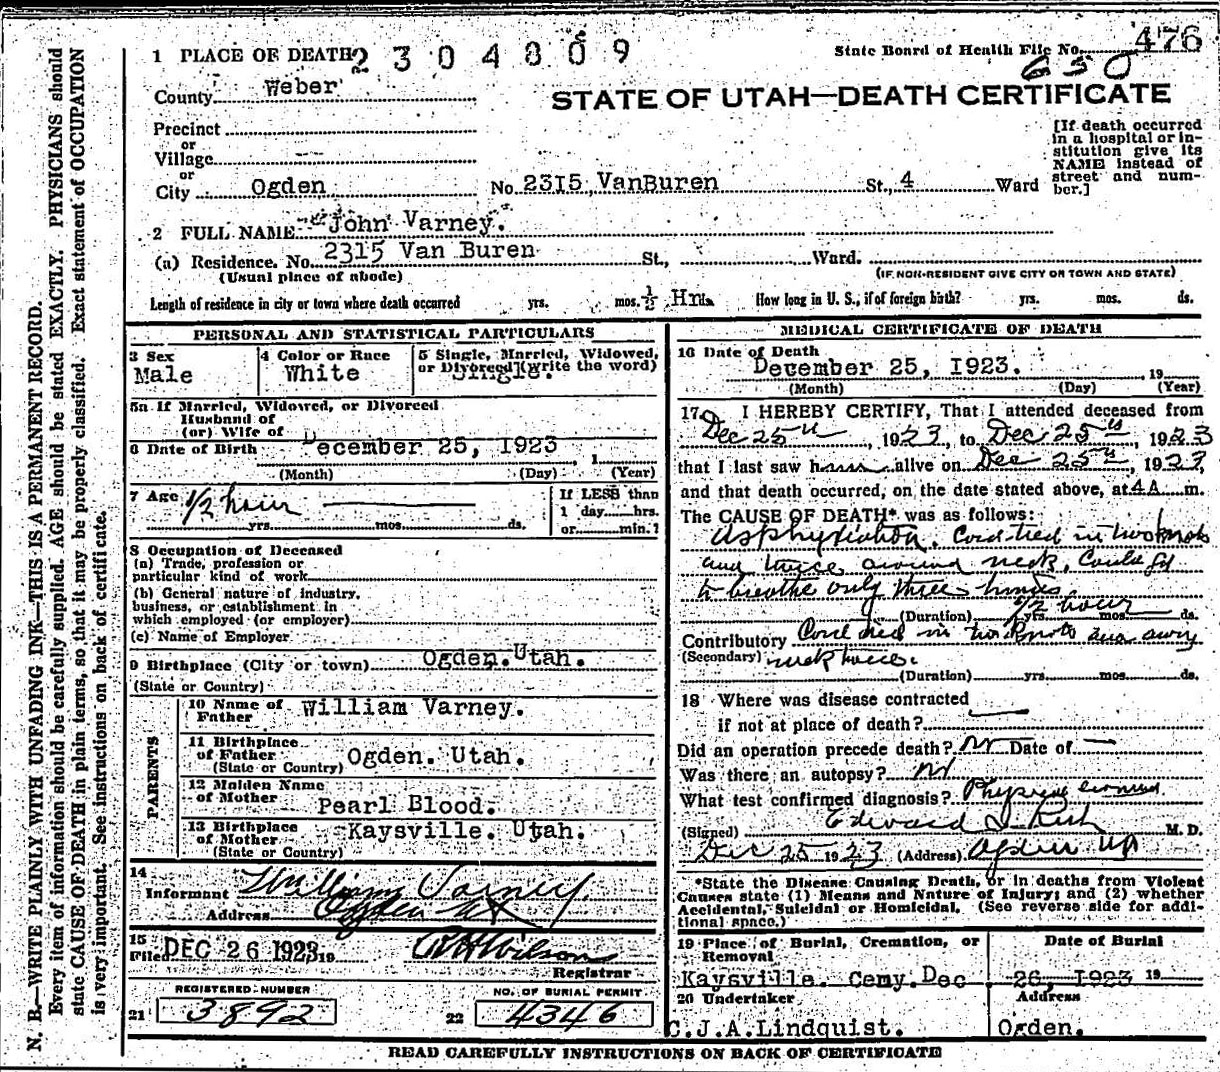 1 PLACE OF DEATH 2304809
State Board of Health File No. 476
650
County Weber
STATE OF UTAH—DEATH CERTIFICATE
Precinct
or
Village
or
City Ogden No. 2315 VanBuren St., 4 Ward
[If death occurred in a hospital or institution give its NAME instead of street and number.]
2 FULL NAME John Varney.
(a) Residence. No. 2315 Van Buren St., Ward.
(Usual place of abode) (IF NON-RESIDENT GIVE CITY OR TOWN AND STATE)
Length of residence in city or town where death occurred yrs. mos. 1/2 Hrs. How long in U. S., if of foreign birth? yrs. mos. ds.
PERSONAL AND STATISTICAL PARTICULARS
3 Sex
Male
4 Color or Race
White
5 Single, Married, Widowed,
or Divorced (write the word)
Single.
5a If Married, Widowed, or Divorced
Husband of
(or) Wife of
6 Date of Birth December 25, 1923, 1
(Month) (Day) (Year)
7 Age 1/2 hour
yrs. mos. ds.
If LESS than
1 day hrs.
or min.?
8 Occupation of Deceased
(a) Trade, profession or
particular kind of work
(b) General nature of industry,
business, or establishment in
which employed (or employer)
(c) Name of Employer
9 Birthplace (City or town) Ogden. Utah.
(State or Country)
PARENTS
10 Name of
Father William Varney.
11 Birthplace
of Father
(State or Country) Ogden. Utah.
12 Maiden Name
of Mother Pearl Blood.
13 Birthplace
of Mother
(State or Country) Kaysville. Utah.
14
Informant William Varney
Address Ogden Ut
15
Filed DEC 26 1923 19
R H Wilson
Registrar
REGISTERED NUMBER
21 3892
NO. OF BURIAL PERMIT
22 4346
MEDICAL CERTIFICATE OF DEATH
16 Date of Death
December 25, 1923. 19
(Month) (Day) (Year)
17 I HEREBY CERTIFY, That I attended deceased from
Dec 25th, 1923, to Dec 25th, 1923
that I last saw him alive on Dec 25th, 1923,
and that death occurred, on the date stated above, at 4A m.
The CAUSE OF DEATH* was as follows:
Asphyxiation. Cord tied in two knots
and twice around neck. Could get
to breathe only three times
(Duration) 1/2 hour yrs. mos. ds.
Contributory Cord tied in two knots and
(Secondary) neck twice.
(Duration) yrs. mos. ds.
18 Where was disease contracted
if not at place of death?
Did an operation precede death? No Date of —
Was there an autopsy? No
What test confirmed diagnosis? Physical
(Signed) Edward I. Rich M. D.
Dec 25 1923 (Address) Ogden Ut
*State the Disease Causing Death, or in deaths from Violent
Causes state (1) Means and Nature of Injury; and (2) whether
Accidental, Suicidal or Homicidal. (See reverse side for addi-
tional space.)
19 Place of Burial, Cremation, or
Removal
Kaysville. Cemy.
Date of Burial
Dec. 26, 1923 19
20 Undertaker
C.J.A.Lindquist.
Address
Ogden.
READ CAREFULLY INSTRUCTIONS ON BACK OF CERTIFICATE
N. B.—WRITE PLAINLY WITH UNFADING INK—THIS IS A PERMANENT RECORD.
Every item of information should be carefully supplied. AGE should be stated EXACTLY. PHYSICIANS should
state CAUSE OF DEATH in plain terms, so that it may be properly classified. Exact statement of OCCUPATION
is very important. See instructions on back of certificate.